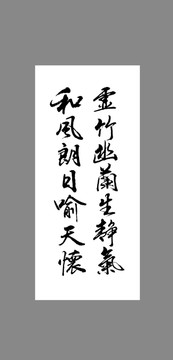 虛竹幽蘭生靜氣
和風朗日喻天懷